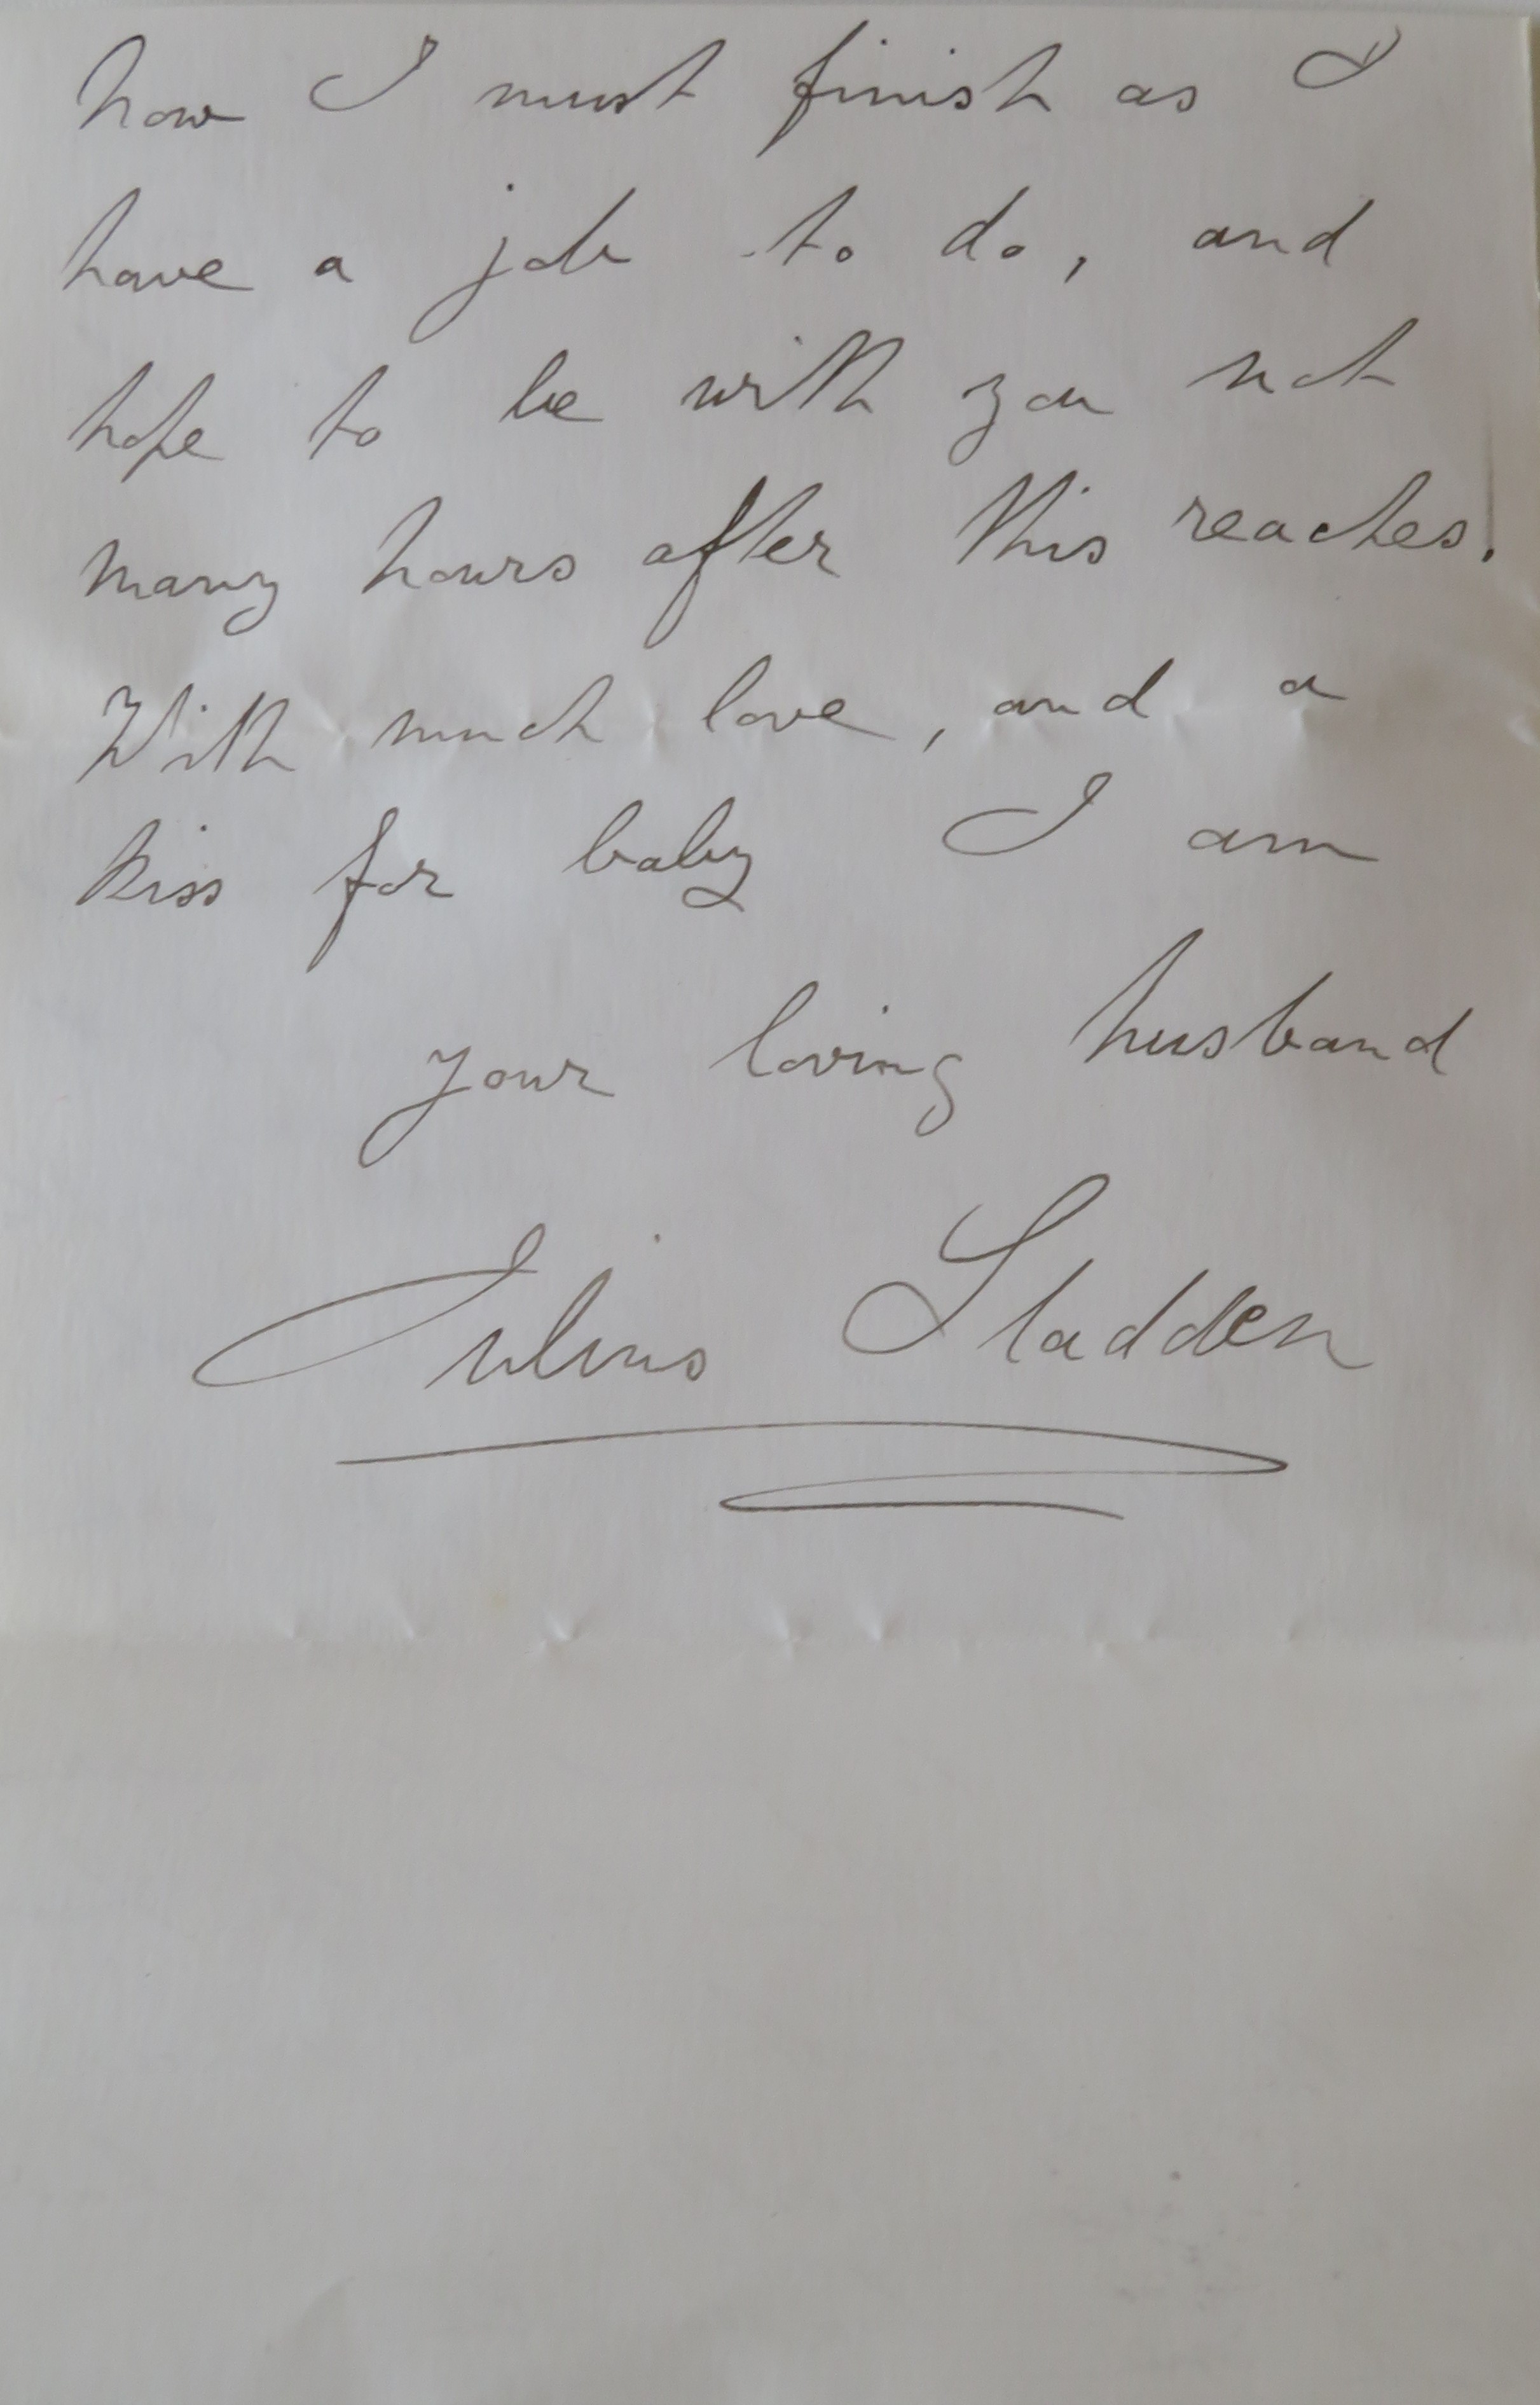 now I must finish as I
have a job to do, and
hope to be with you not
many hours after this reaches.
With much love, and a
kiss for baby I am
your loving husband
Julius Sladden